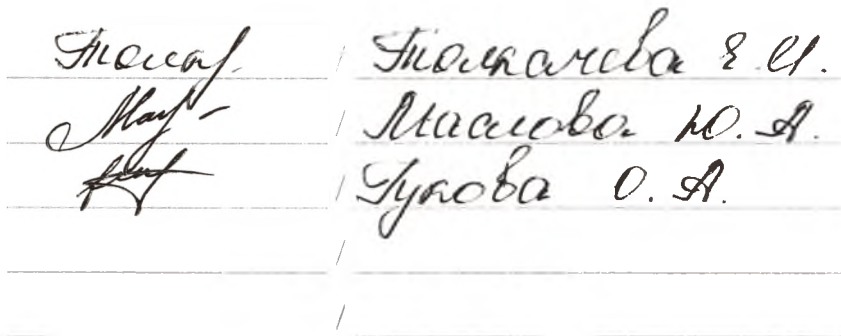 / Толкачева Е.И.
/ Маслова Ю.А.
/ Гукова О.А.
/
/